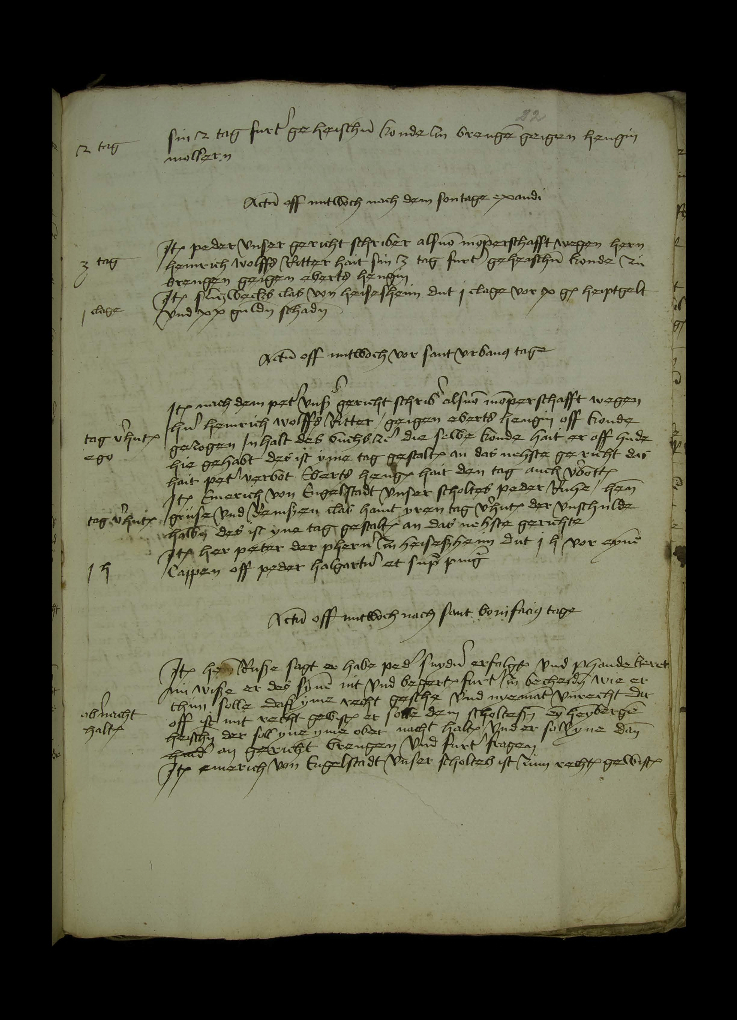 22
2 tag
sin 2 tag furt geheischen konde zu brengen geigen hengin
mollern
Actum off mitwoch nach dem sontage exaudi
3 tag
Item peder unser gericht schriber als von momperschafft wegen hern
heinrich wolffs Ritter hait sin 3 tag furt geheischen konde zu
brengen geigen eberts hengin
1 clage
Item clas von heisesheim dut 1 clage vor x gulden heuptgelt
und xx gulden schaden
Actum off mitwoch vor sant urbanus tage
Item nach dem peter unser gericht schriber als von momperschafft wegen
hern heinrich wolffs Ritter geigen eberts hengin off konde
tag verhut
ego
gezogen Inhalt des buchs die selbe konde hait er off hude
hie gehabt des ist yme tag gestalt an das nehste gericht das
hait peter verbot Eberts hengin hait den tag auch verbott
Item Emerich von Engelstadt unser scholtes peder Ruße hen
tag verhut
gruse und Remßen clas haint yren tag verhut der unschulde
halben des ist yne tag gestalt an das nehste gerichte
Item her peter der pherner zu heisesheim dut 1 h vor eynen
1 h
Cappen off peder halgarten et super pignora
Actum off mitwoch nach sant bonifacius tage
Item hen Ruße sagt er habe peder snyder erfolgt und phande berett
nu wiße er des synen nit und begert furt zu bescheiden wie er
thun solle daß yme recht geschee und nyemant unrecht dar
obernacht
halten
off ist mit recht gewist er solle dem scholtessen heyberge
heischen der sol yne yme ober nacht halten und er sol yne dan
an gericht brengen und furt fragen
Item emerich von Engelstadt unser scholtes ist zum rechten gewist